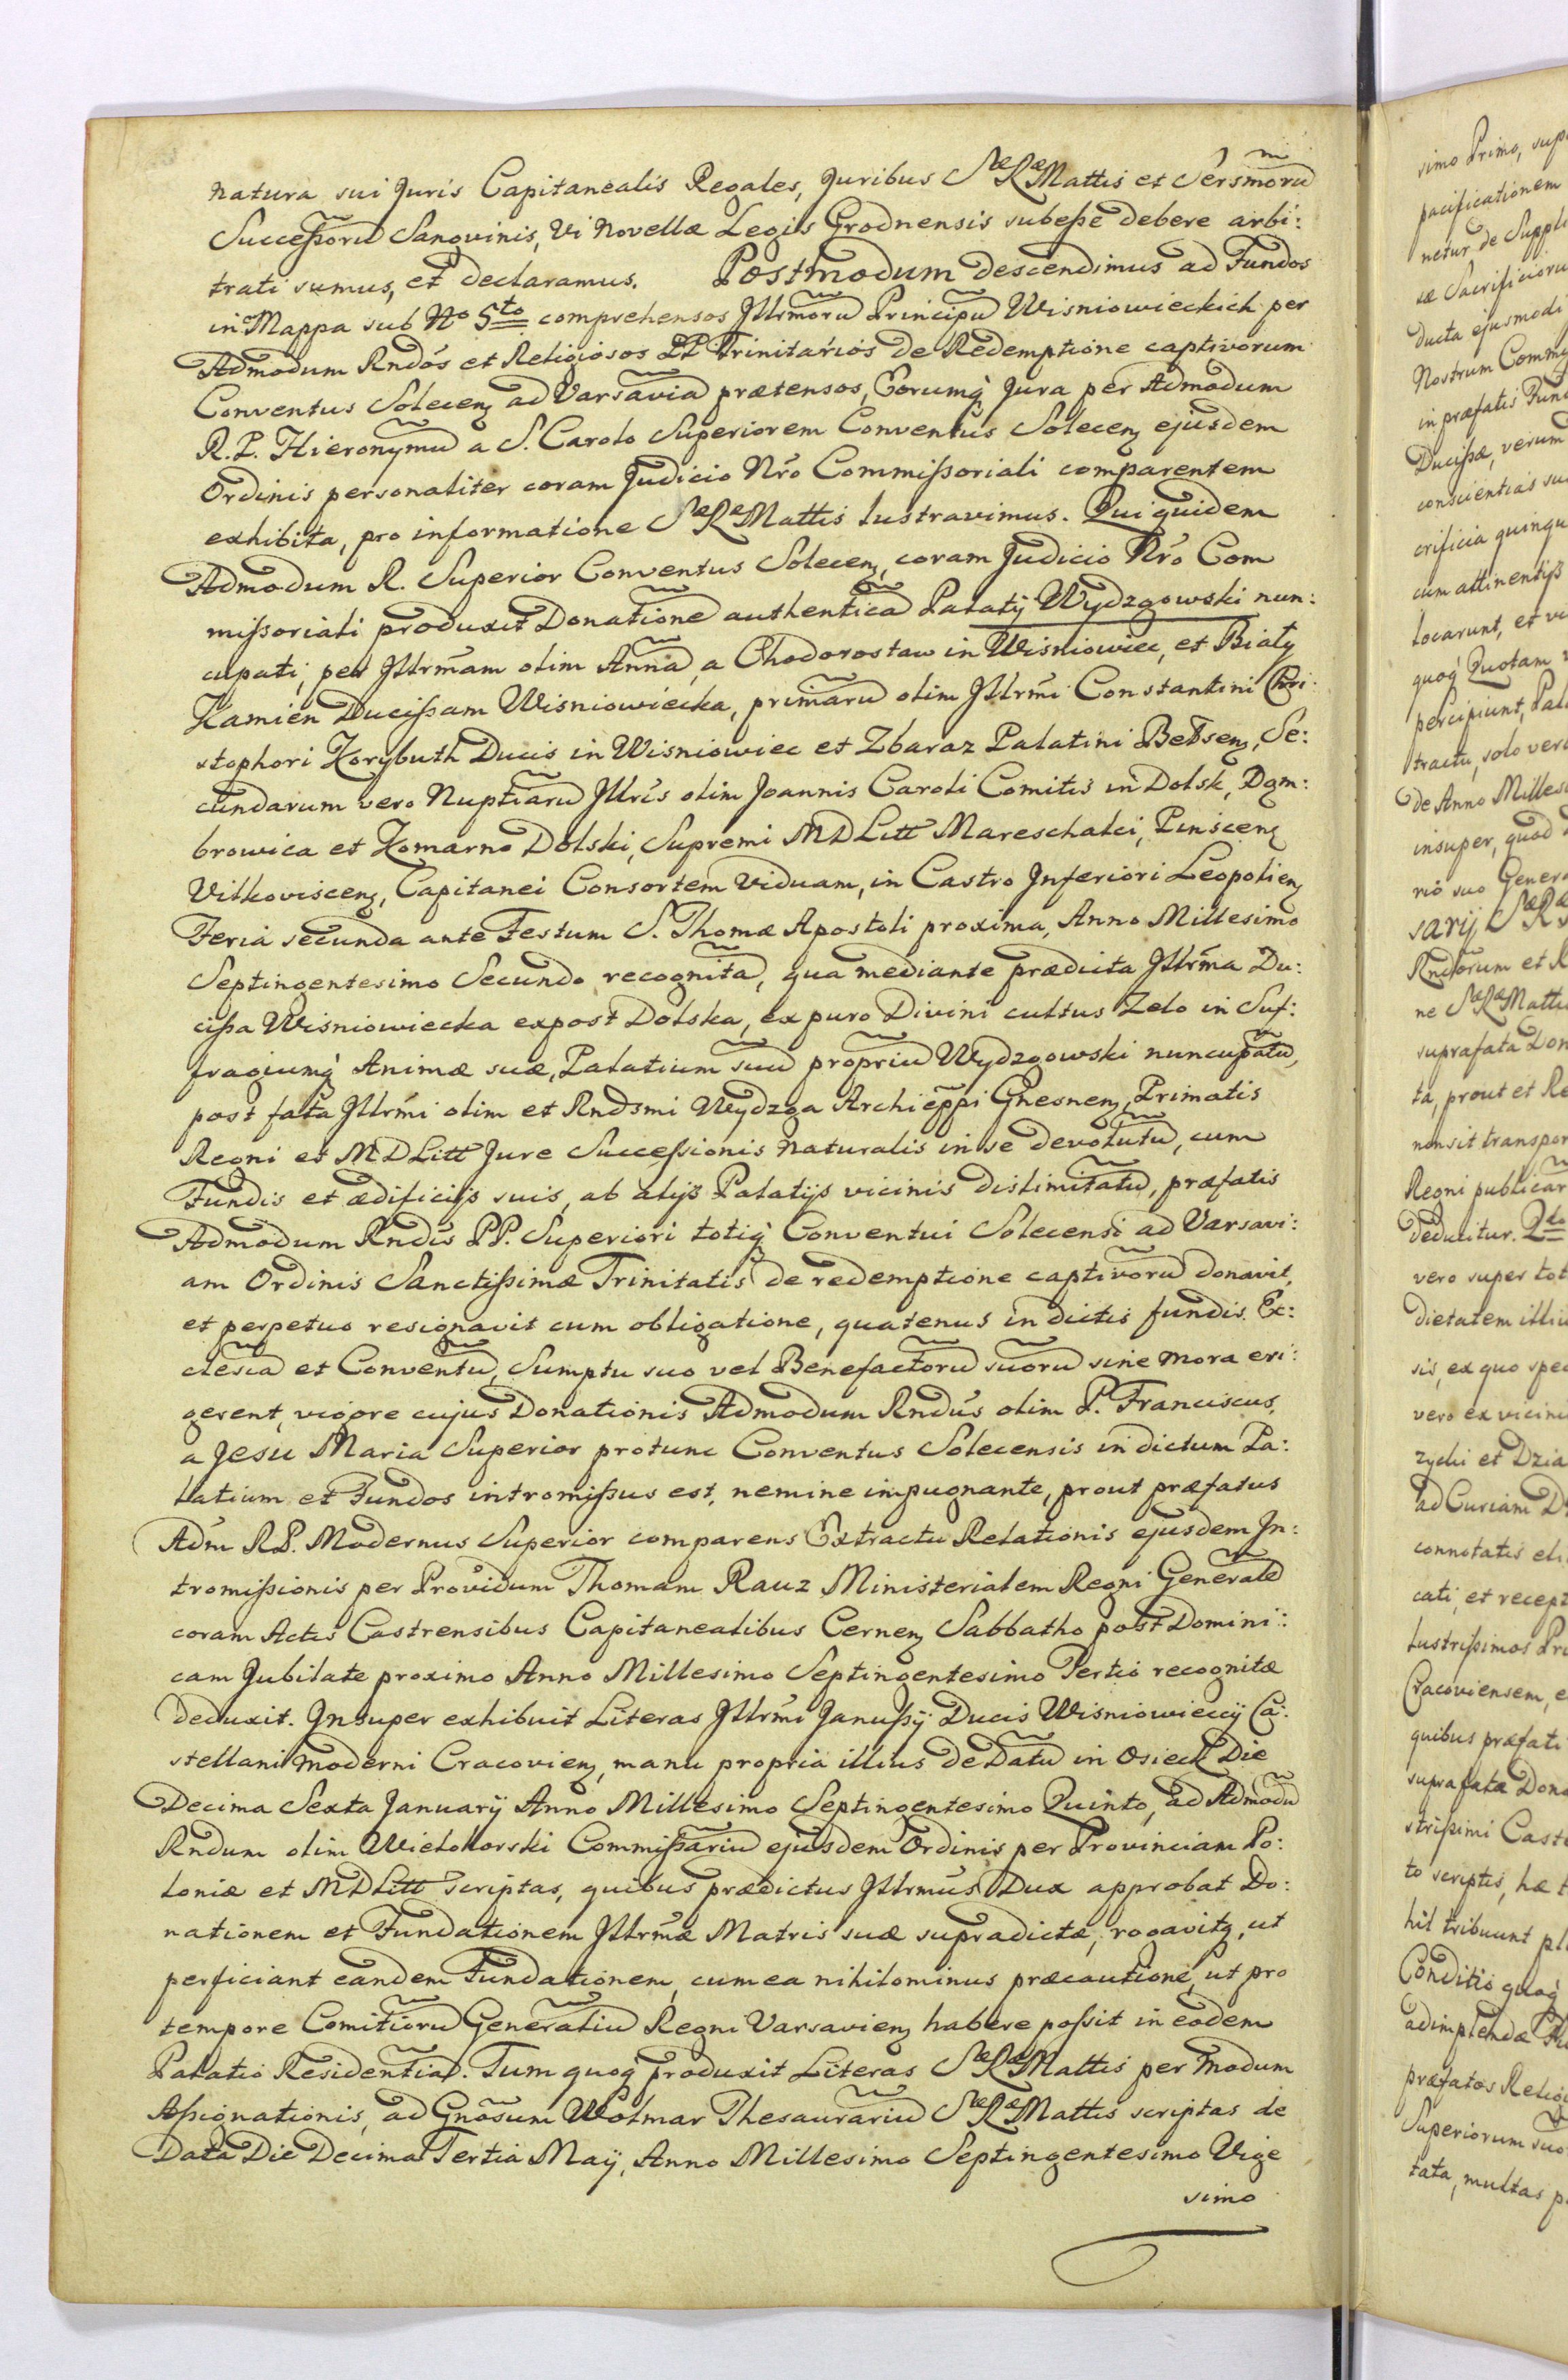 natura sui Juris Capitanealis Regales, Juribus Sæ Ræ Mattis et Sersmorũ
Successorũ Sangvinis, Vi Novellæ Legis Grodnensis subesse debere arbi:
trati sumus, et declaramus. Postmodum descendimus ad Fundos
in Mappa sub No 5to comprehensos Jllrmorũ Principũ Wisniowieckich per
Admodum Rndos et Religiosos PP Trinitarios de Redemptione captivorum
Conventus Solecen ad Varsaviã prætensos, Eorumq Jura per Admodum
R. P. Hieronymũ a S. Carolo Superiorem Conventus Solecen ejusdem
Ordinis personaliter coram Judicio Nro Commissoriali comparentem
exhibita, pro informatione Sæ Ræ Mattis lustravimus. Qui quidem
Admodum R. Superior Conventus Solecen, coram Judicio Nro Com
missoriali produxit Donationẽ authenticã Palatij Wydzgowski nun:
cupati, per Jllrmam olim Annã, a Chodorostaw in Wisniowiec, et Bialy
Kamien Ducissam Wisniowiecka, primarũ olim Jllrmi Constantini Chri:
stophori Korybuth Ducis in Wisniowiec et Zbaraz Palatini Belsen, Se:
cundarum vero Nuptiarũ Jllris olim Joannis Caroli Comitis in Dolsk, Dąm:
browica et Komarno Dolski, Supremi MDLitt Mareschalci, Pinscen
Vilkoviscen, Capitanei Consortem Viduam, in Castro Inferiori Leopolien
Feria secunda ante Festum S. Thomæ Apostoli proxima, Anno Millesimo
Septingentesimo Secundo recognitã, qua mediante prædicta Jllrma Du:
cissa Wisniowiecka expost Dolska, ex puro Divini cultus Zelo in Suf:
fragiumq Animæ suæ, Palatium suũ propriũ Wydzgowski nuncupatũ,
post fata Jllrmi olim et Rndsmi Wydzga Archieppi Gnesnen, Primatis
Regni et MDLitt Jure Successionis naturalis in se devolutũ, cum
Fundis et ædificijs suis, ab alijs Palatijs vicinis dislimitatũ, præfatis
Admodum Rndis PP. Superiori totiq Conventui Solecensi ad Varsavi:
am Ordinis Sanctissimæ Trinitatis de redemptione captivorũ donavit,
et perpetuo resignavit cum obligatione, quatenus in dictis fundis Ec:
clesiã et Conventũ, Sumptu suo vel Benefactorũ suorũ sine mora eri:
gerent, vigore cujus Donationis Admodum Rndus olim P. Franciscus,
a Jesu Maria Superior protunc Conventus Solecensis in dictum Pa:
latium et Fundos intromissus est, nemine impugnante, prout præfatus
Adm RP. Modernus Superior comparens Extractu Relationis ejusdem In:
tromissionis per Providum Thomam Rauz Ministerialem Regni Generalẽ
coram Actis Castrensibus Capitanealibus Cernen Sabbatho post Domini:
cam Jubilate proximo Anno Millesimo Septingentesimo Tertio recognitæ
deduxit. Insuper exhibuit Literas Jllrmi Janussij Ducis Wisniowiecij Ca:
stellani moderni Cracovien, manu propria illius de Datũ in Osieck Die
Decima Sexta Januarij Anno Millesimo Septingentesimo Quinto, ad Admodũ
Rndum olim Wielohorski Commissariũ ejusdem Ordinis per Provinciam Po:
loniæ et MDLitt scriptas, quibus prædictus Jllrmus Dux approbat Do:
nationem et Fundationem Jllrmæ Matris suæ supradictæ, rogavitq, ut
perficiant eandem Fundationem, cum ea nihilominus præcautione, ut pro
tempore Comitiorũ Generaliũ Regni Varsavien habere possit in eodem
Palatio Residentiã. Tum quoq produxit Literas Sæ Ræ Mattis per modum
Assignationis, ad Gnosum Wolmar Thesaurariũ Sæ Ræ Mattis scriptas de
Data Die Decima Tertia Maij, Anno Millesimo Septingentesimo Vige
simo
simo Primo,
pacificationem
netur de
æ Sacrificiorũ
ducta ejusmodi
Nostrum
in præfatis
Ducissæ, verum
conscientias
crificia
cum attinentijs
locarunt, et
quoq Quotam
percipiunt,
tractu, solo
de Anno
insuper, quod
rio suo
sarij Sæ Ræ
Rndorum et
ne Sæ Ræ Mattis
suprafata
ta, prout et
non sit
Regni
deducitur.
vero super
dietatem
sis, ex quo
vero ex
zycki et
ad Curiam
connotatis
cati, et
lustrissimos
Cracoviensem,
quibus præfati
suprafatæ
strissimi
to scriptis, hæ
hil tribuunt
Conditio quoq
adimplendæ
præfatos
Superiorum
tata, multas